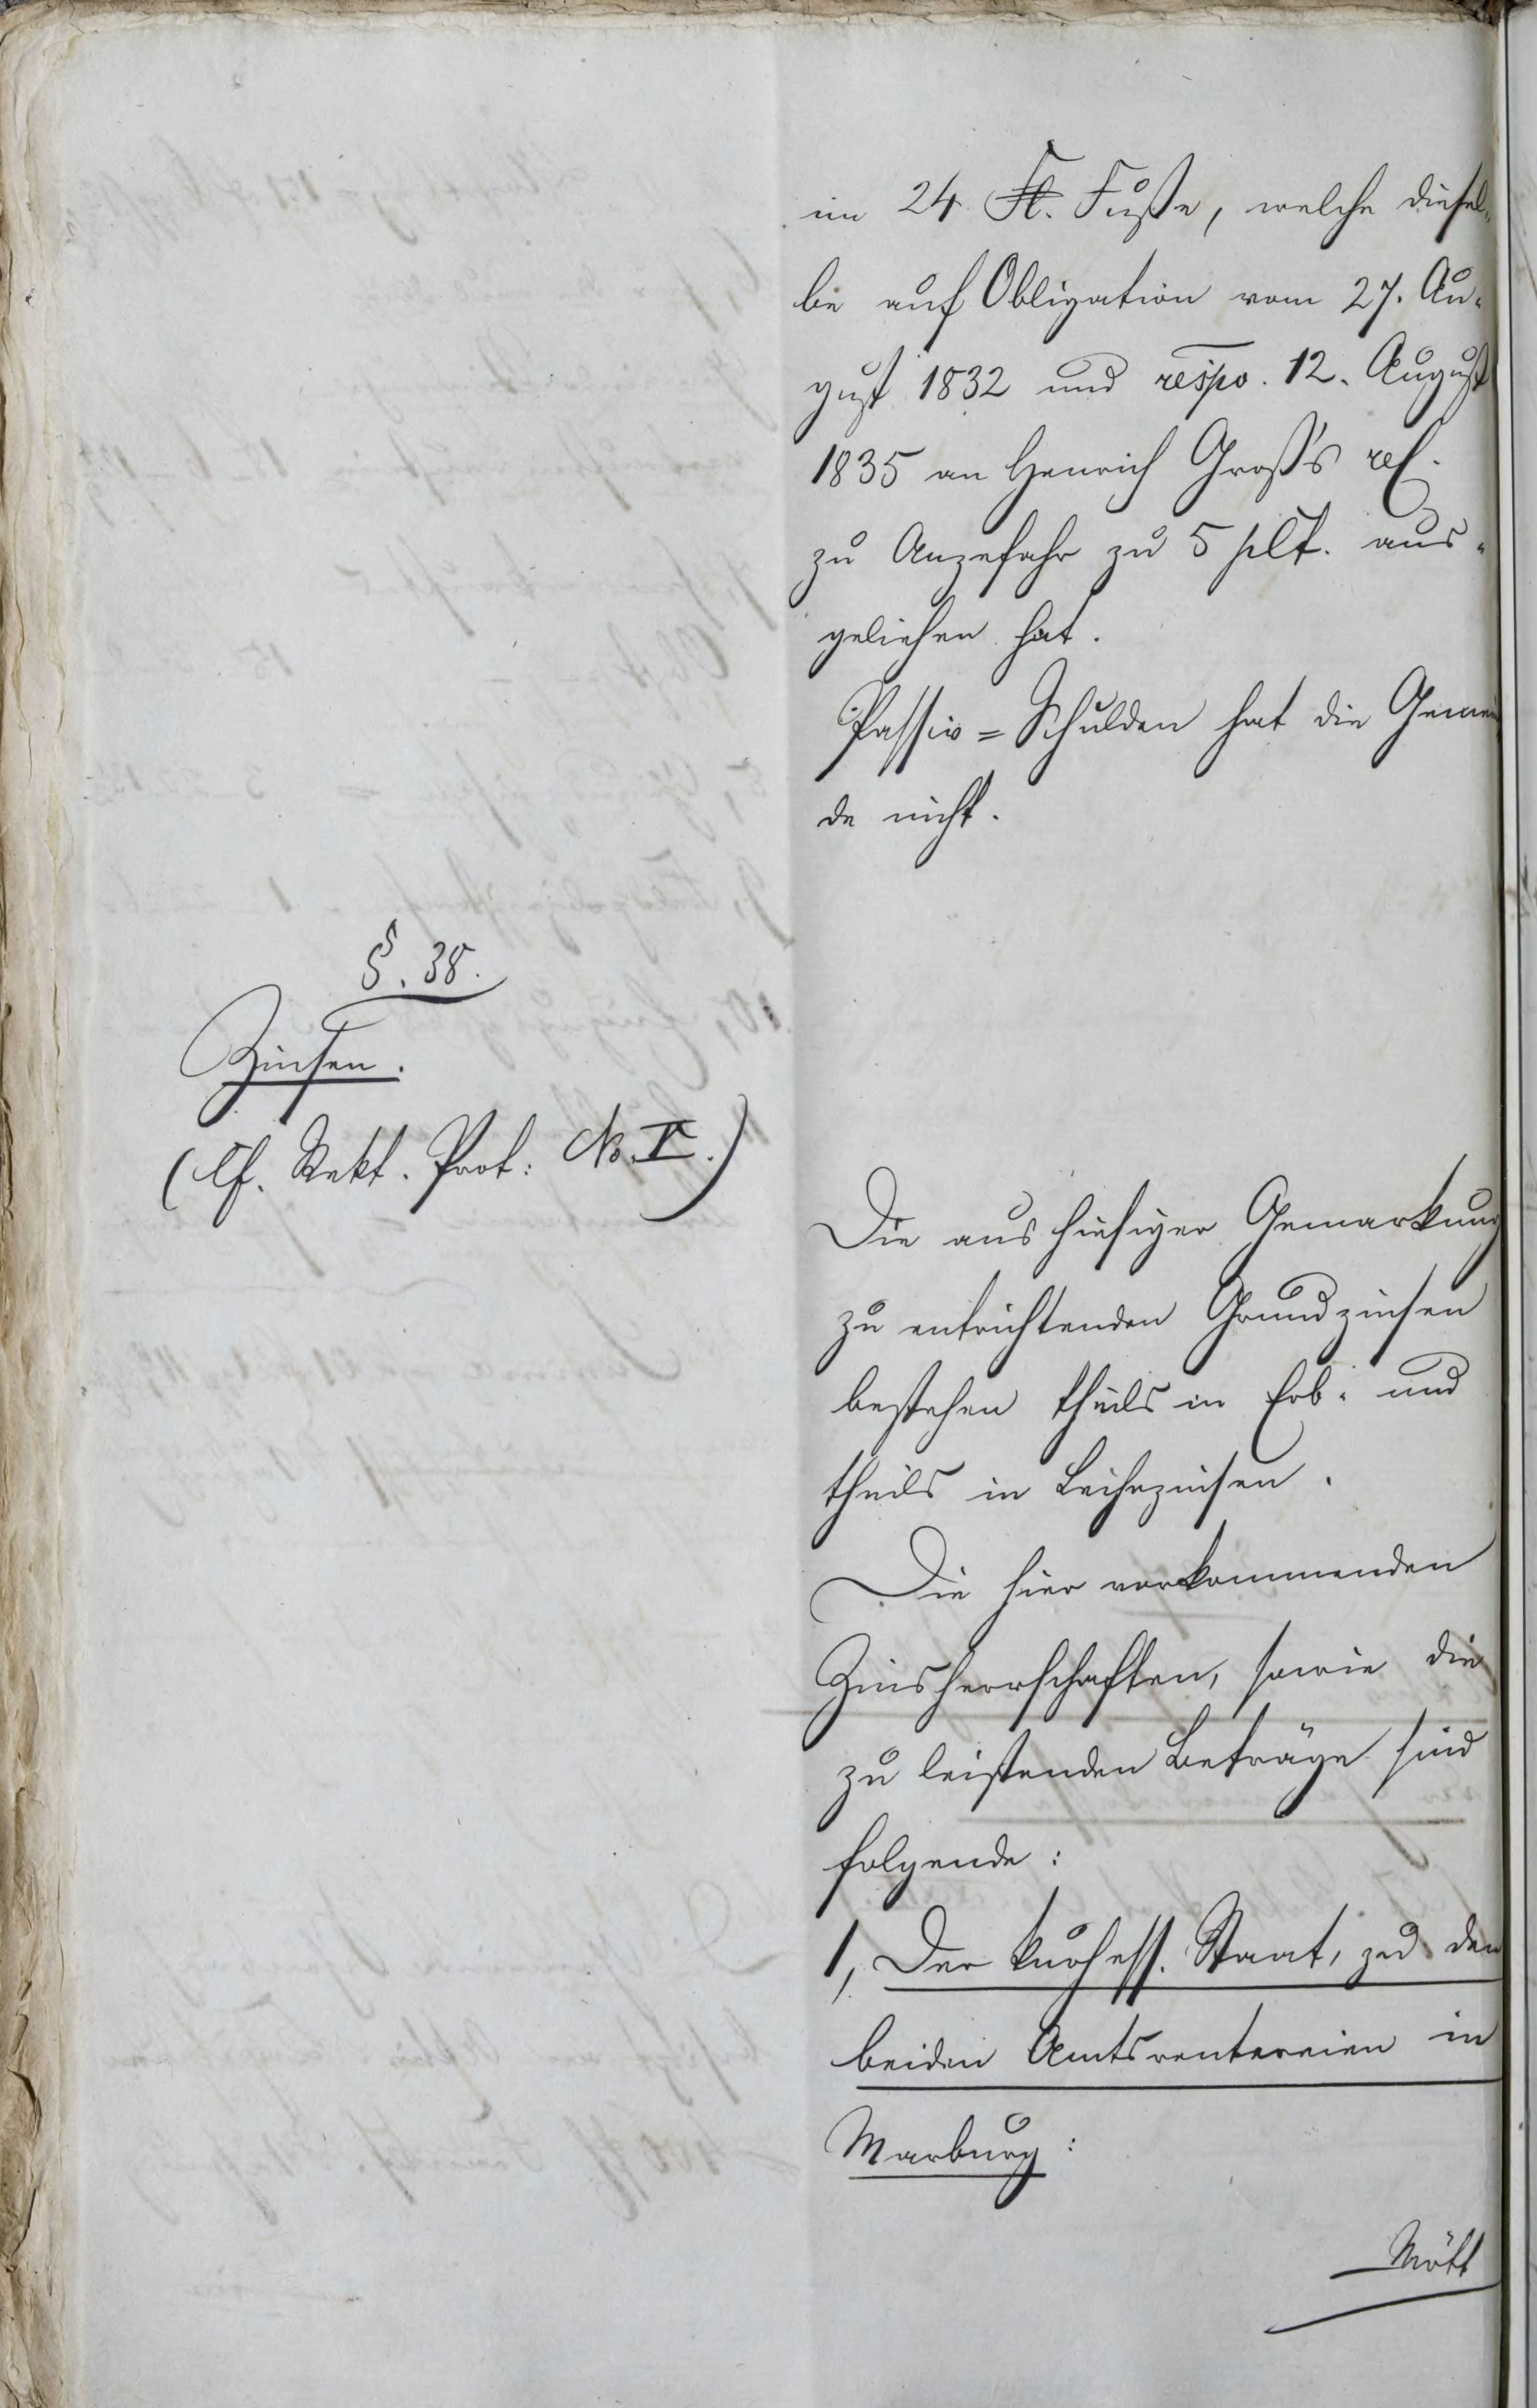 im 24 Fl. Fuße, welche diesel-
be auf Obligation vom 27. Au-
gust 1832 und respv. 12. August
1835 an Henrich Groß's rel.
zu Anzefahr zu 5 pCt. aus-
geliehen hat.
Passiv=Schulden hat die Gemein
de nicht.
§. 38.
Zinsen.
(cf. Rekt. Prot: No. V.)
Die aus hiesiger Gemarkung
zu entrichtenden Grundzinsen
bestehen theils in Erb- und
theils in Leihezinsen.
Die hier vorkommenden
Zinsherrschaften, sowie die
zu leistenden Beträge sind
folgende:
1, Der kurhess. Staat, zu den
beiden Amtsrentereien in
Marburg: